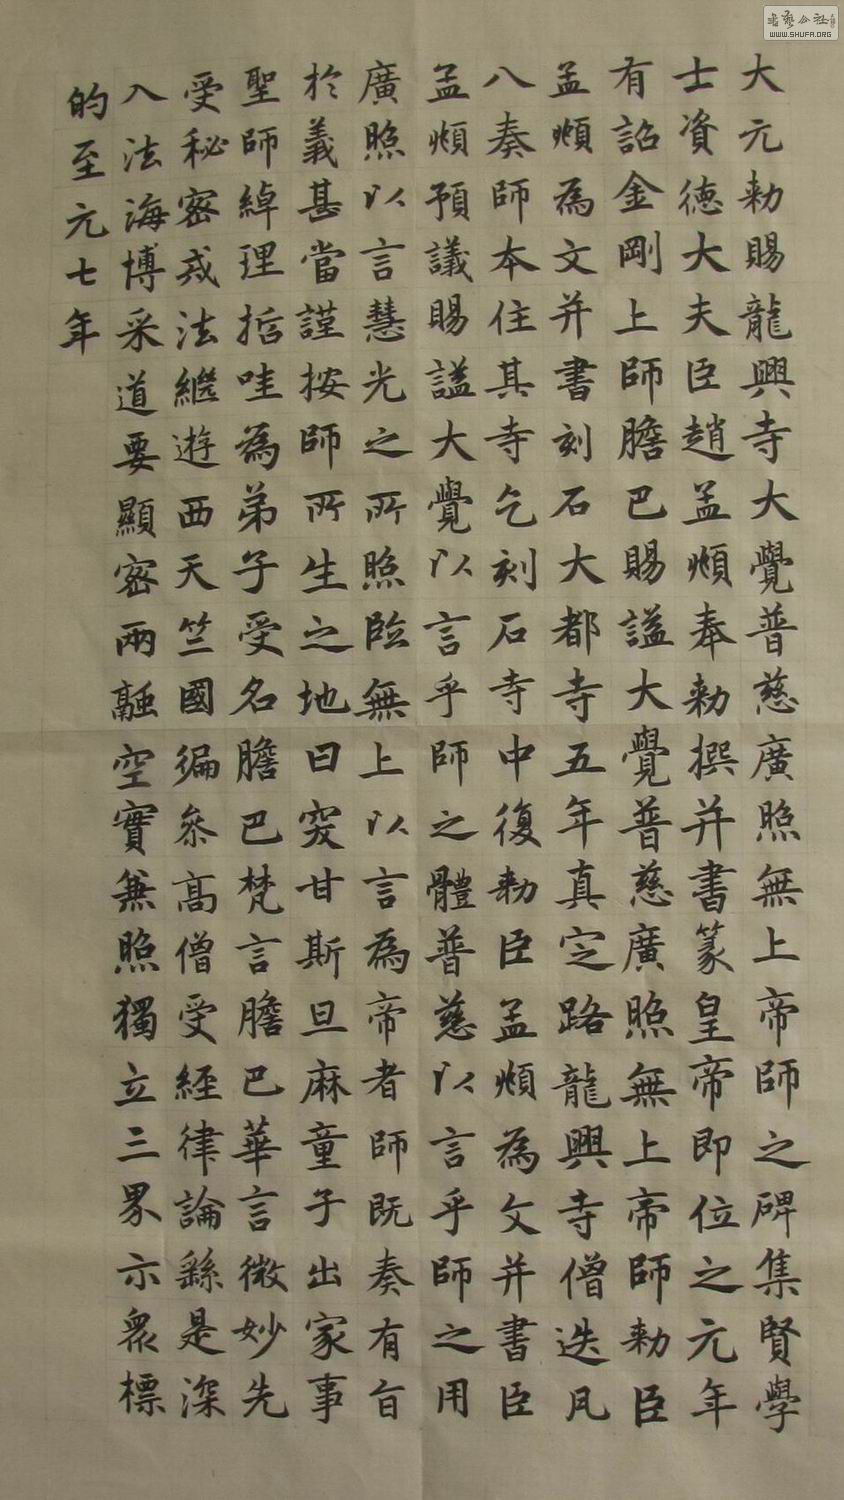 大元勅賜龍興寺大覺普慈廣照無上帝師之碑集賢學
士資德大夫臣趙孟頫奉勅撰并書篆皇帝即位之元年
有詔金剛上師膽巴賜謚大覺普慈廣照無上帝師勅臣
孟頫為文并書刻石大都寺五年真定路龍興寺僧迭凡
八奏師本住其寺乞刻石寺中復勅臣孟頫為文并書臣
孟頫預議賜謚大覺以言乎師之體普慈以言乎師之用
廣照以言慧光之所照臨無上以言為帝者師既奏有旨
於義甚當謹按師所生之地曰突甘斯旦麻童子出家事
聖師綽理哲哇為弟子受名膽巴梵言膽巴華言微妙先
受秘密戒法繼遊西天竺國徧參高僧受經律論繇是深
入法海博采道要顯密兩融空實兼照獨立三界示眾標
的至元七年
書藝公社
WWW.SHUFA.ORG